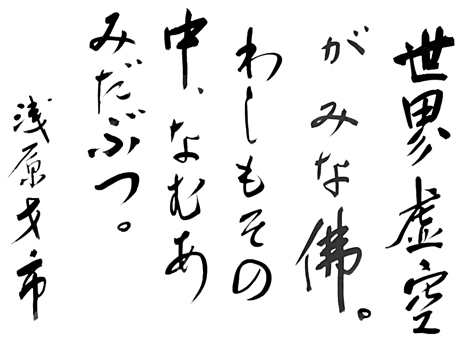 世界虚空
がみな佛。
わしもその
中、なむあ
みだぶつ。
浅原才市